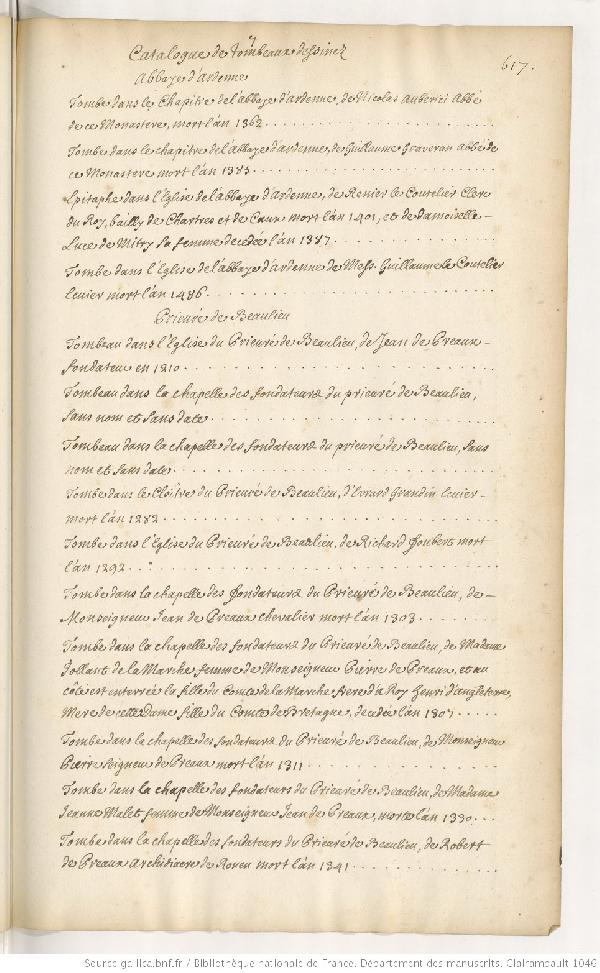 Catalogue de tombeaux dessinez
617.
Abbaye d'ardenne
Tombe dans le Chapitre de l'abbaye d'ardenne, de Nicolas Auberici Abbé
de ce Monastere, mort l'an 1362
Tombe dans le chapitre de l'abbaye d'ardenne, de Guillaume Graveran Abbé de
ce Monastere mort l'an 1383
Epitaphe dans l'Eglise de l'abbaye d'Ardenne, de Renier le Coutelier Clerc
du Roy, bailly de Chartres et de Caux mort l'an 1401, et de damoiselle
Luce de Mitry sa femme decedée l'an 1387
Tombe dans l'Eglise de l'abbaye d'ardenne de Mess. Guillaume le Coutelier
Ecuier mort l'an 1486
Prieuré de Beaulieu
Tombeau dans l'Eglise du Prieuré de Beaulieu, de Jean de Preaux
fondateur en 1210
Tombeau dans la chapelle des fondateurs du prieuré de Beaulieu,
sans nom et sans date
Tombeau dans la chapelle des fondateurs du prieuré de Beaulieu, sans
nom et sans date
Tombe dans le Cloître du Prieuré de Beaulieu, d'Evrard Grandin Ecuier
mort l'an 1282
Tombe dans l'Eglise du Prieuré de Beaulieu, de Richard Joubert mort
l'an 1292
Tombe dans la chapelle des fondateurs du Prieuré de Beaulieu, de
Monseigneur Jean de Preaux chevalier mort l'an 1303
Tombe dans la chapelle des fondateurs du Prieuré de Beaulieu, de Madame
Jollant de la Marche femme de Monseigneur Pierre de Preaux, et au
côté est enterrée la fille du Comte de la Marche frere du Roy Henri d'angleterre,
Mere de cette Dame fille du Comte de Bretagne, decedée l'an 1307
Tombe dans la chapelle des fondateurs du Prieuré de Beaulieu, de Monseigneur
Pierre Seigneur de Preaux mort l'an 1311
Tombe dans la chapelle des fondateurs du Prieuré de Beaulieu, de Madame
Jeanne Malet femme de Monseigneur Jean de Preaux, morte l'an 1330
Tombe dans la chapelle des fondateurs du Prieuré de Beaulieu, de Robert
de Preaux Archidiacre de Rouen mort l'an 1341
Source gallica.bnf.fr / Bibliothèque nationale de France. Département des manuscrits. Clairambault 1046